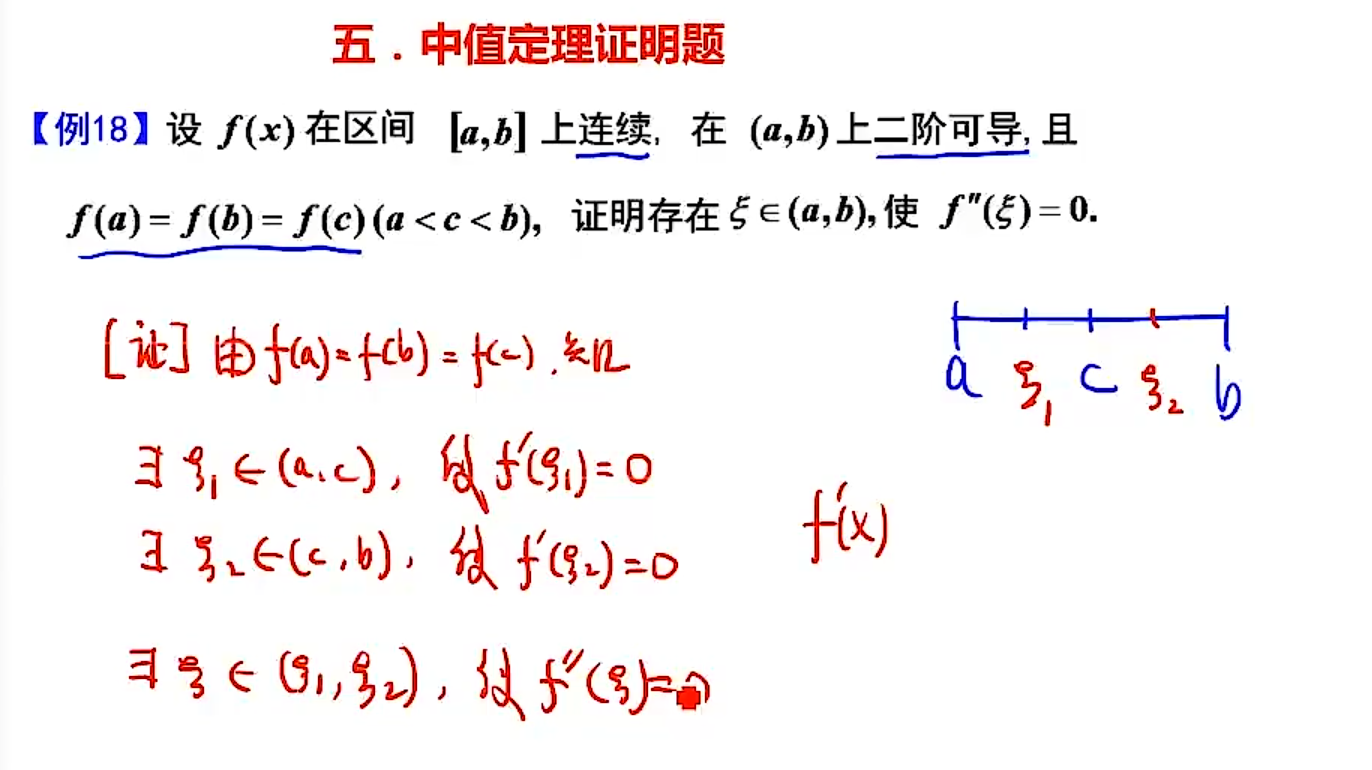 五．中值定理证明题
【例18】设 f(x) 在区间 [a,b] 上连续, 在 (a,b) 上二阶可导, 且
f(a) = f(b) = f(c) (a < c < b), 证明存在 ξ ∈ (a,b), 使 f″(ξ) = 0.
[证] 由 f(a) = f(b) = f(c) . 知
a ξ₁ c ξ₂ b
∃ ξ₁ ∈ (a.c) , 使 f′(ξ₁) = 0
f′(x)
∃ ξ₂ ∈ (c,b) , 使 f′(ξ₂) = 0
∃ ξ ∈ (ξ₁,ξ₂) , 使 f″(ξ) = 0